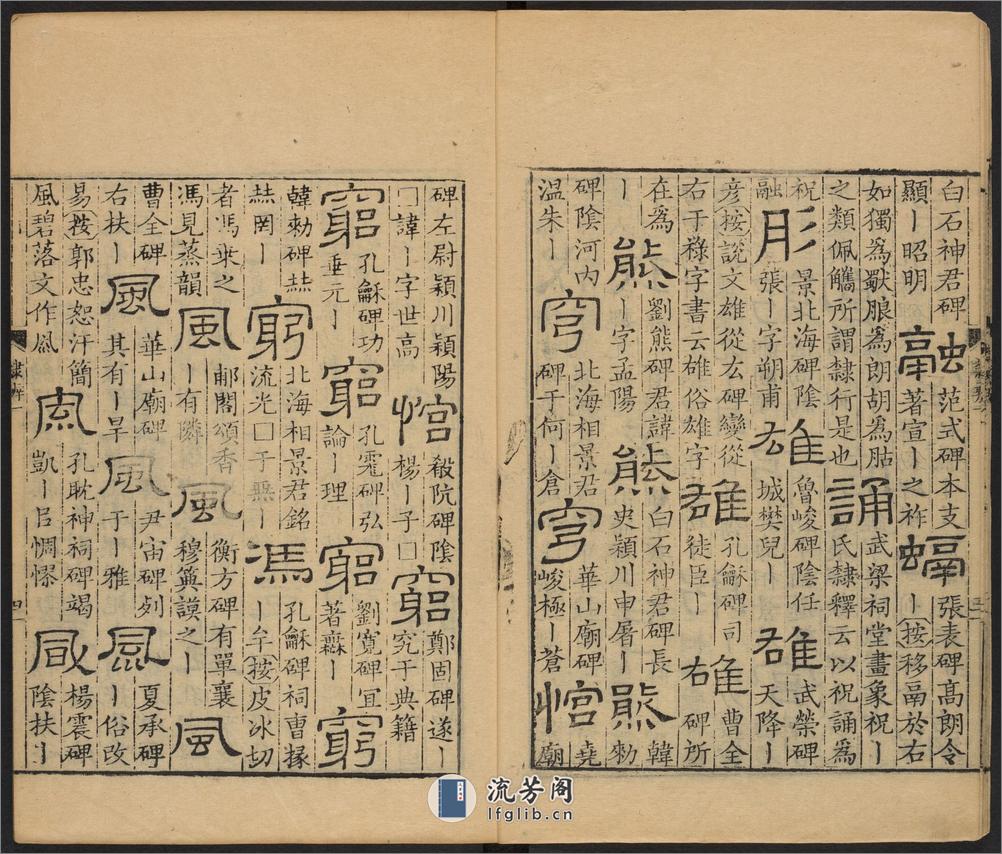 白石神君碑顯丨昭明 融 范式碑本支著宣丨之祚 螎 張表碑高朗令丨按移鬲於右
如獨為獸朖為朗胡為䏦之類佩觿所謂隸行是也 誦 武梁祠堂畫象祝丨氏隸釋云以祝誦為
祝融 肜 景北海碑陰張丨字朔甫 雄 魯峻碑陰任城樊兒丨 雄 武榮碑天降丨
彥按說文雄從厷碑變從右干祿字書云雄俗雄字 雄 孔龢碑司徒臣丨 雄 曹全碑所
在為丨 熊 劉熊碑君諱丨字孟陽 熊 白石神君碑長史潁川申屠丨 熊 韓勑
碑陰河內溫朱丨 穹 北海相景君碑于何丨倉 穹 華山廟碑峻極丨蒼 悺 堯廟
碑左尉穎川穎陽□諱丨字世高 悺 殽阬碑陰楊丨子□ 窮 鄭固碑遂丨究于典籍
窮 孔龢碑功垂元丨 窮 孔霮碑弘論丨理 窮 劉寬碑宜著丨 窮
韓勑碑罔丨 窮 北海相景君銘流光□于無丨 馮 孔龢碑祠曹掾丨牟按皮冰切
者馮乗之馮見蒸韻 風 郙閣頌香丨有隣 風 衡方碑有單襄穆典謨之丨 風
曹全碑右扶丨 風 華山廟碑其有丨旱 風 尹宙碑于丨雅 風 夏承碑丨俗改
易按郭忠恕汗簡風碧落文作凮 風 孔耽神祠碑竭凱丨以惆憀 風 楊震碑陰扶丨
流芳阁
lfglib.cn